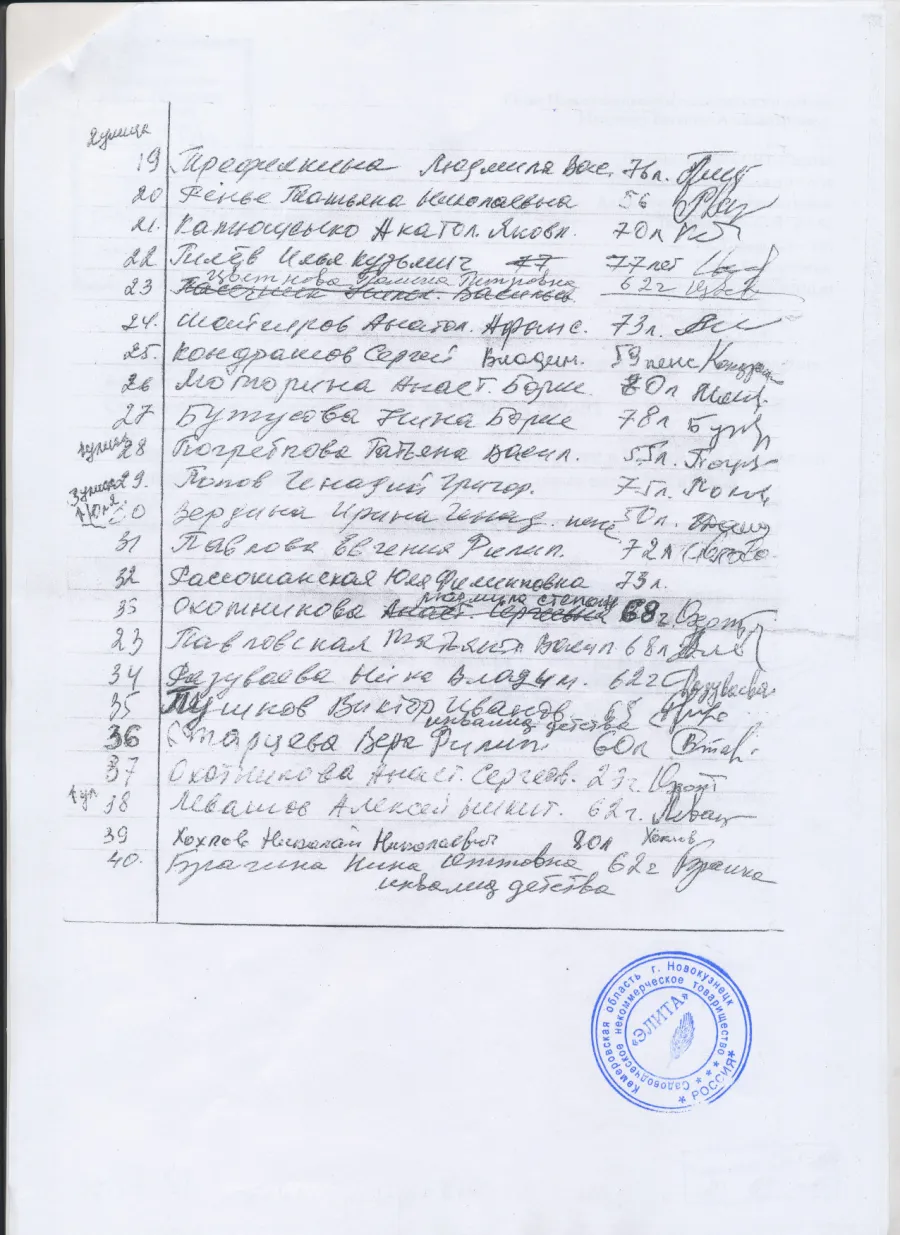 2 улица
19 Трефелкина Людмила Вас. 76 л.
20 Фенье Татьяна Николаевна 56
21. Анатол. Яковл. 70 л
22 Гилёв Илья Кузьмич 77 77 лет
Цветкова Галина Петровна
23 62 г
24. Анатол. Афанс. 73 л.
25. Кондрашов Сергей Владим. 59 пенс
26 Моторина Анаст. Борис 80 л
27 Бутусова Нина Борис 78 л
улица
28 Погрепова Татьяна Васил. 55 л.
3 улица
29. Попов Генадий Григор. 75 л.
30 Вердина Ирина Генад. пенс 50 л.
31 Павлова Евгения Филип. 72 л
32 Рассошанская Юля Филипповна 73 л.
людмила степан
33 Охотникова Анаст. Сергеевна 68 г.
23 Павловская Татьяна Васил 68 л
34 Разуваева Нина Владим. 62 г Разуваева
35 Пушков Виктор Иванов
инвалид детства
36 Старцева Вера Филип. 60 л
37 Охотникова Анаст. Сергеев. 23 г.
4 ул
38 Левашов Алексей Никит. 62 г. Леваш
39 Хохлов Николай Николаевич 80 л Хохлов
40. Брагина Нина 62 г
инвалид детства
Кемеровская область г. Новокузнецк
Садоводческое некоммерческое товарищество
"ЭЛИТА"
* РОССИЯ *